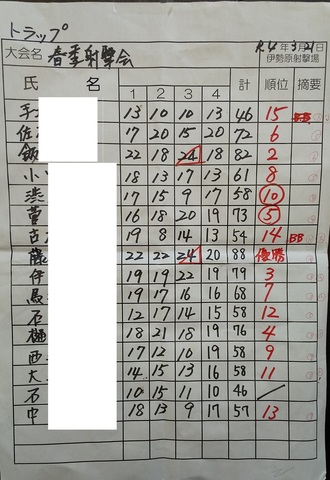 トラップ
大会名 春季射撃会 R4年3月21日
伊勢原射撃場
氏 名 1 2 3 4 計 順位 摘要
手 13 10 10 13 46 15 BB
佐 17 20 15 20 72 6
飯 22 18 24 18 82 2
小 18 13 17 13 61 8
渋 17 15 9 17 58 10
菅 16 18 20 19 73 5
古 19 8 14 13 54 14 BB
藤 22 22 24 20 88 優勝
伊 19 19 22 19 79 3
馬 19 17 16 16 68 7
石 12 17 14 15 58 12
樋 18 21 18 19 76 4
西 17 12 10 19 58 9
大 14 15 13 16 58 11
石 10 15 11 10 46
中 18 13 9 17 57 13